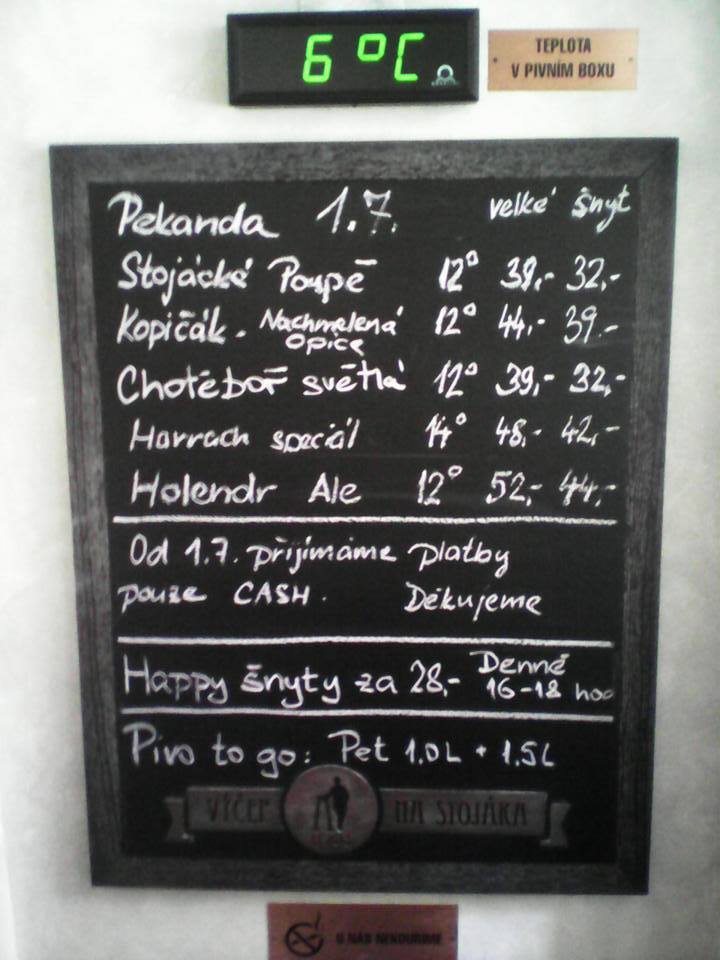 6 °C
TEPLOTA
V PIVNÍM BOXU
Pekanda 1.7. velké šnyt
Stojácké Poupě 12° 39,- 32,-
Kopičák - Nachmelená Opice 12° 44,- 39.-
Chotěboř světlá 12° 39,- 32,-
Harrach speciál 14° 48,- 42,-
Holendr Ale 12° 52,- 44,-
Od 1.7. přijímáme platby
pouze CASH. Děkujeme
Happy šnyty za 28,- Denně 16-18 hod
Pivo to go: Pet 1.0L + 1.5L
VÝČEP NA STOJÁKA
U NÁS NEKOUŘÍME